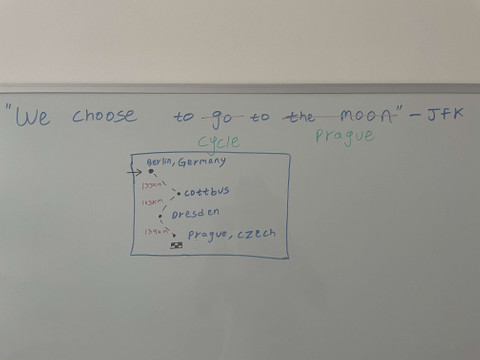 "We choose to go to the moon" - JFK
cycle Prague
Berlin, Germany
cottbus
Dresden
Prague, czech